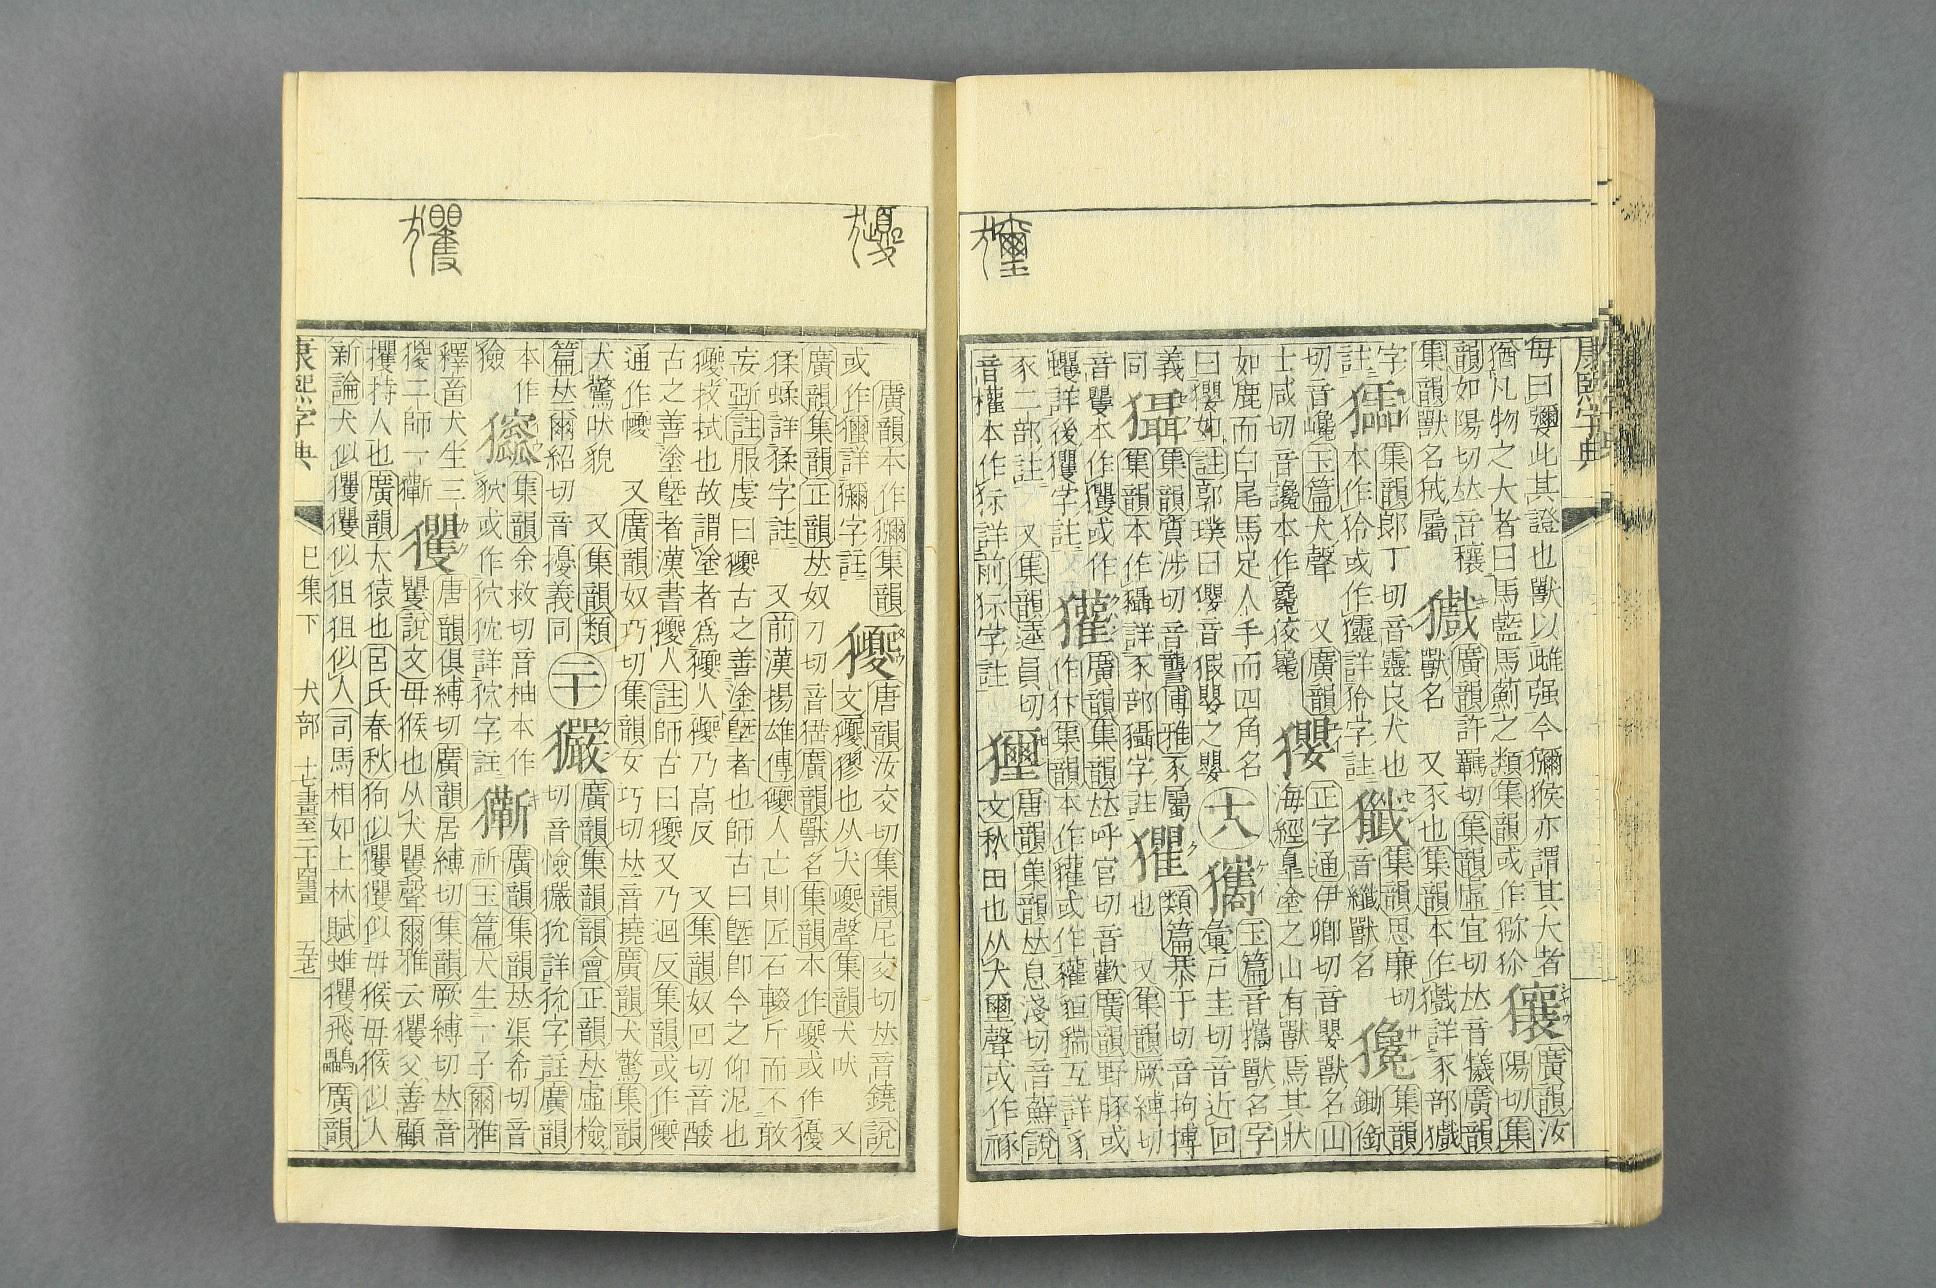 每曰玃此其證也獸以雌强今獼猴亦謂其大者獽廣韻汝
猶凡物之大者曰馬藍馬薊之類集韻或作陽切集
韻如陽切𠀤音穰廣韻許羈切集韻虛宜切𠀤音犧廣韻
集韻獸名狨屬獸名又豕也集韻本作詳豕部
字集韻郎丁切音靈良犬也集韻思廉切集韻
註本作狑或作詳狑字註音纖獸名鋤銜
切音毚玉篇犬聲又廣韻正字通伊卿切音嬰獸名山
士咸切音讒本作毚狡毚海經皐塗之山有獸焉其狀
如鹿而白尾馬足人手而四角名十八玉篇音攜獸名字
曰如註郭璞曰音猳嬰之嬰彙戸圭切音近回
義集韻質涉切音讋博雅豕屬類篇恭于切音拘搏
同集韻本作詳豕部字註也又集韻厥縛切
音矍本作玃或作獾廣韻集韻𠀤呼官切音歡廣韻野豚或
蠼詳後玃字註作集韻本作貛或作狟猯互詳豕
豕二部註又集韻逵員切唐韻集韻𠀤息淺切音蘚說
音權本作詳前字註文秋田也从犬璽聲或作
廣韻本作獮集韻獿唐韻汝交切集韻尼交切𠀤音鐃說
或作詳獮字註文獿獿也从犬夒聲集韻犬吠又
廣韻集韻正韻𠀤奴刀切音猱廣韻獸名集韻本作夒或作
猱蝚詳猱字註又前漢揚雄傳獿人亡則匠石輟斤而不敢
妄斲註服虔曰獿古之善塗塈者也師古曰塈卽今之仰泥也
獿抆拭也故謂塗者爲獿人獿乃高反又集韻奴回切音
古之善塗塈者漢書獿人註師古曰獿又乃迴反集韻或作
通作又廣韻奴巧切集韻女巧切𠀤音撓廣韻犬驚集韻
犬驚吠貌又集韻類二十玁廣韻集韻韻會正韻𠀤虛檢
篇𠀤爾紹切音擾義同切音憸玁狁詳狁字註廣韻
本作集韻余救切音柚本作廣韻集韻𠀤渠希切音
獫或作狖詳狖字註祈玉篇犬生一子爾雅
釋畜犬生三玃唐韻俱縛切廣韻居縛切集韻厥縛切𠀤音
猣二師一矍說文母猴也从犬矍聲爾雅云玃父善顧
攫持人也廣韻大猿也呂氏春秋狗似玃玃似母猴母猴似人
新論犬似玃玃似狙狙似人司馬相如上林賦蜼玃飛鸓廣韻
康熙字典 巳集下 犬部 十七畫至二十四畫 五十七